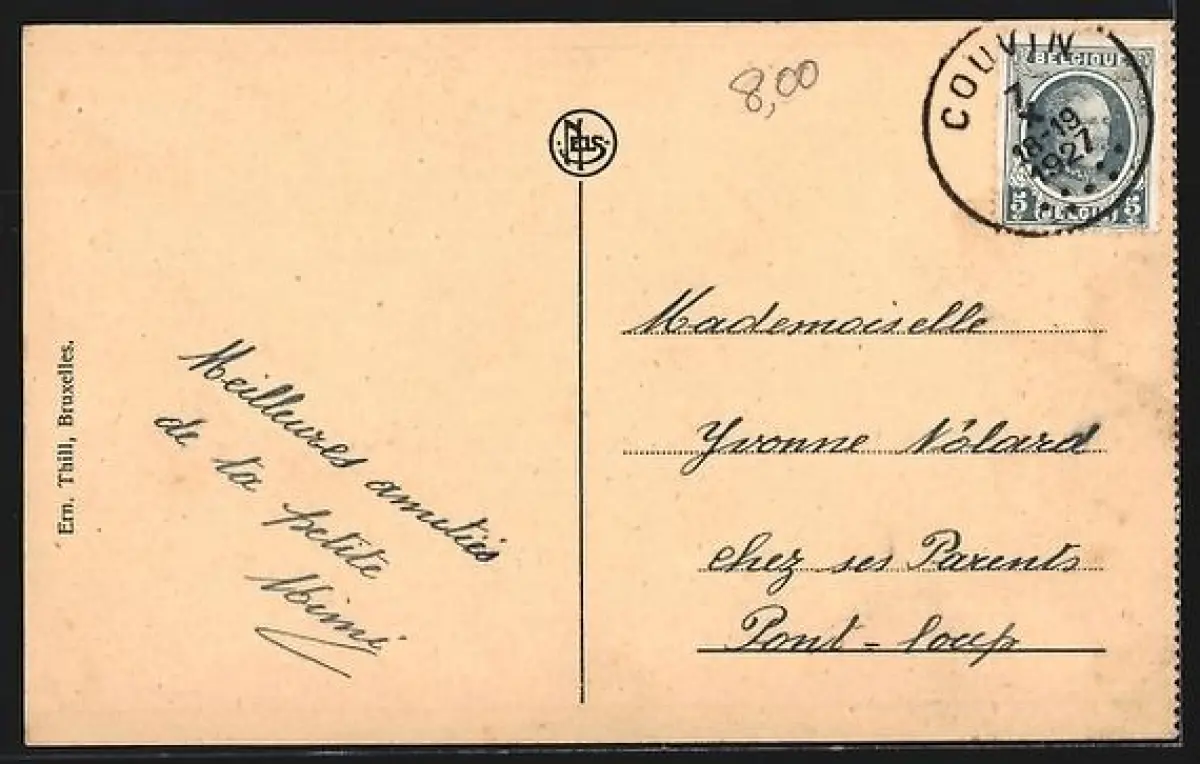 8,00
NELS
COUVIN
7
18-19
1927
BELGIQUE
5 BELGIË 5
Mademoiselle
Yvonne
chez ses Parents
Pont-Loup
Meilleures amitiés
de ta petite
Mimi
Ern. Thill, Bruxelles.